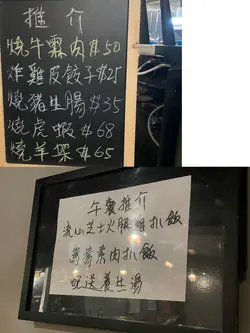 推介
燒牛霖肉$50
炸雞皮餃子$25
燒豬生腸$35
燒虎蝦$68
燒羊架$65
午餐推介
流心芝士火腿雞扒飯
鴛鴦素肉扒飯
配送養生湯